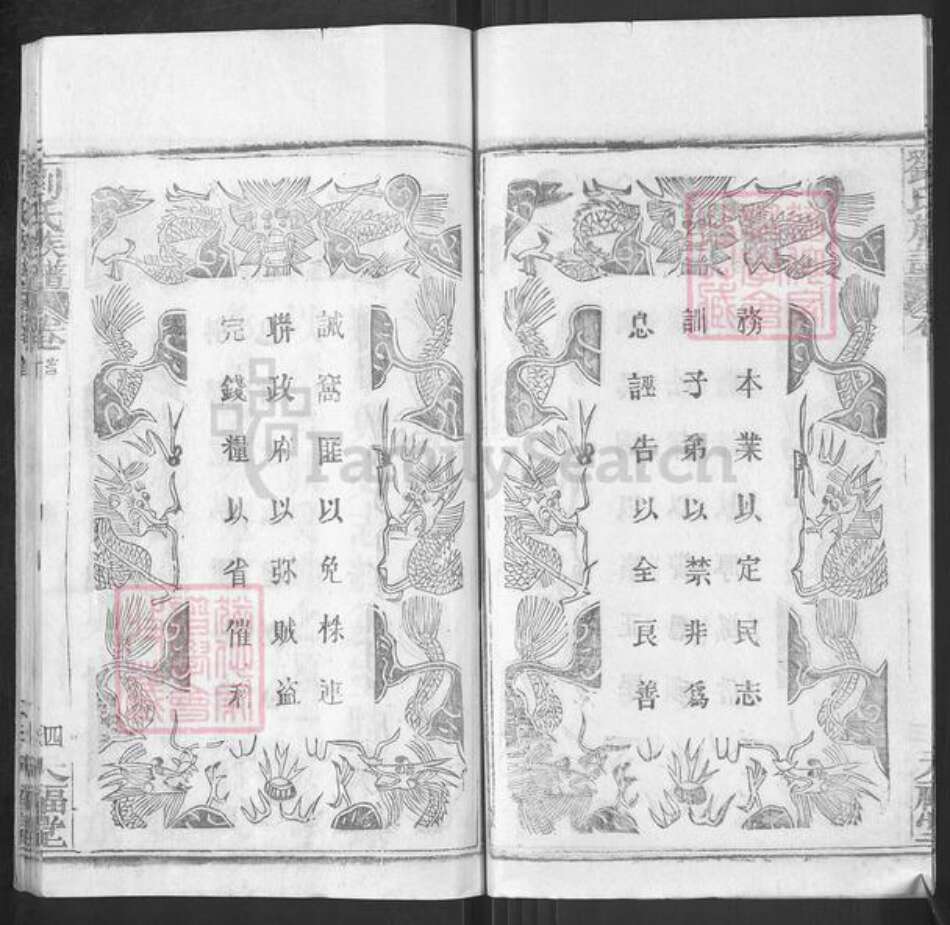 務本業以定民志
訓子弟以禁非爲
息誣告以全良善
誡窩匪以免株連
聯政府以弥賊盗
完錢糧以省催
劉氏族譜
卷首
四
福堂
FamilySearch